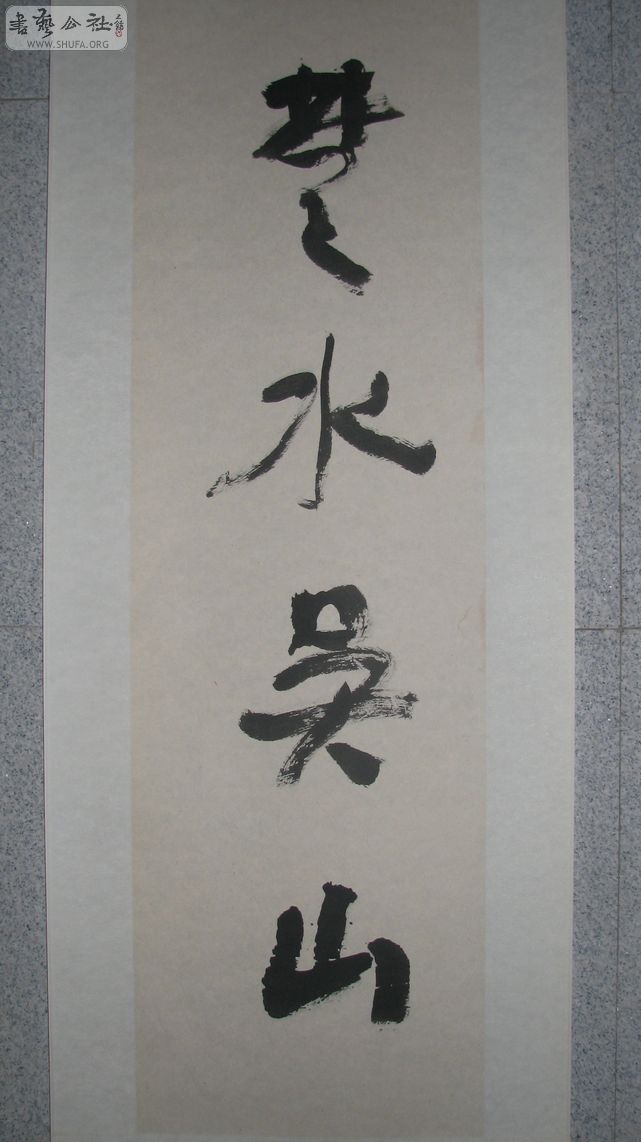 書藝公社
WWW.SHUFA.ORG
楚水吳山